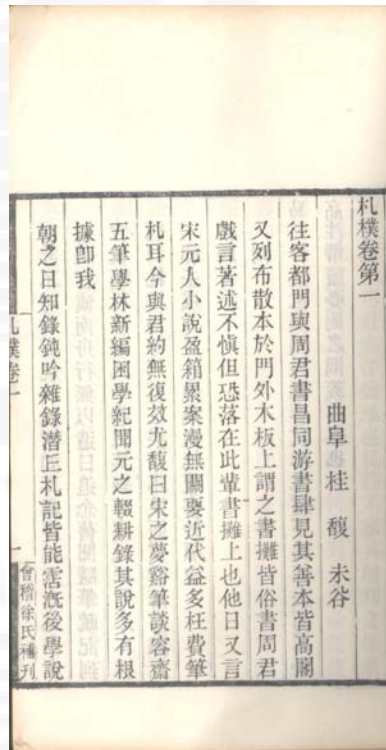 札樸卷第一
曲阜 桂 馥 未谷
往客都門與周君書昌同游書肆見其善本皆高閣
又列布散本於門外木板上謂之書攤皆俗書周君
戲言著述不慎但恐落在此輩書攤上也他日又言
宋元人小說盈箱累案漫無關要近代益多枉費筆
札耳今與君約無復效尤馥曰宋之夢谿筆談容齋
五筆學林新編困學紀聞元之輟耕錄其說多有根
據卽我
朝之日知錄鈍吟雜錄潛丘札記皆能霑漑後學說
札樸卷一
一
會稽徐氏補刊